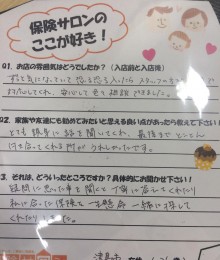 保険サロンの
ここが好き！
Q1. お店の雰囲気はどうでしたか？（入店前と入店後）
ずっと気になっていて
対応してくれ、安心して色々相談できました。
Q2. 家族や友達にも勧めてみたいと思える良い点があったら教えて下さい！
とても親身に話を聞いてくれ、最後までとことん
付き合ってくれる所がうれしかったです。
3. それは、どういったところですか？具体的にお聞かせ下さい！
疑問に思った事を聞くと丁寧に答えてくれたり
私に合った保険を一生懸命一緒に探して
くれたりしました。